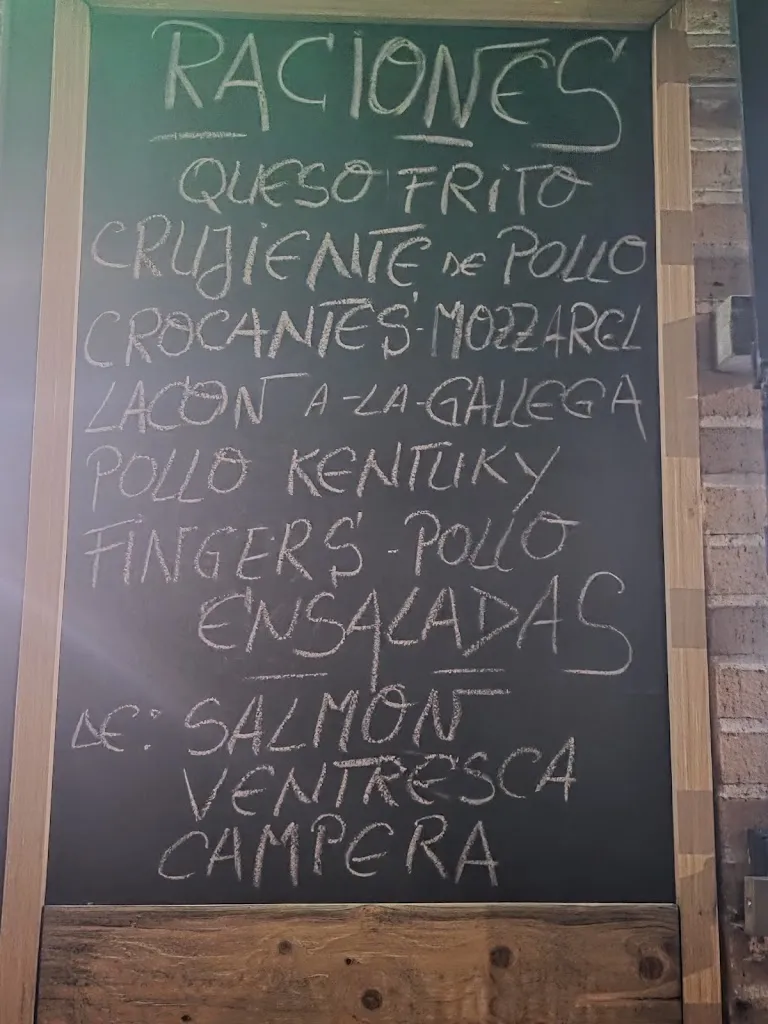 RACIONES
QUESO FRITO
CRUJIENTE DE POLLO
CROCANTES'-MOZZAREL
LACON A-LA-GALLEGA
POLLO KENTUKY
FINGERS'-POLLO
ENSALADAS
DE: SALMON
VENTRESCA
CAMPERA